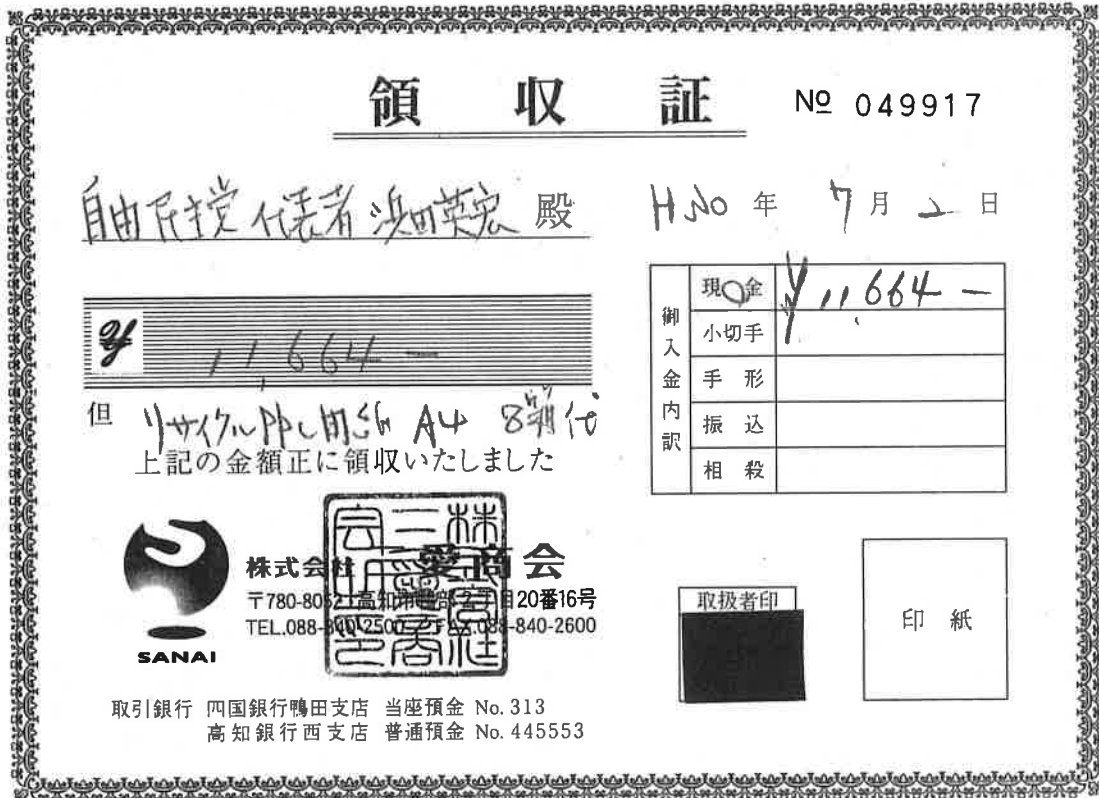 領収証
№ 049917
自由民主党 代表者 浜田英宏 殿
H30年 7月 2日
¥ 11,664 —
但 リサイクルPPC用紙 A4 8箱代
上記の金額正に領収いたしました
御入金内訳
現金 ¥11,664 —
小切手
手形
振込
相殺
株式会社 三愛商会
〒780-805 高知市 20番16号
TEL.088-840-2500 FAX.088-840-2600
SANAI
取扱者印
印紙
取引銀行 四国銀行鴨田支店 当座預金 No.313
高知銀行西支店 普通預金 No.445553